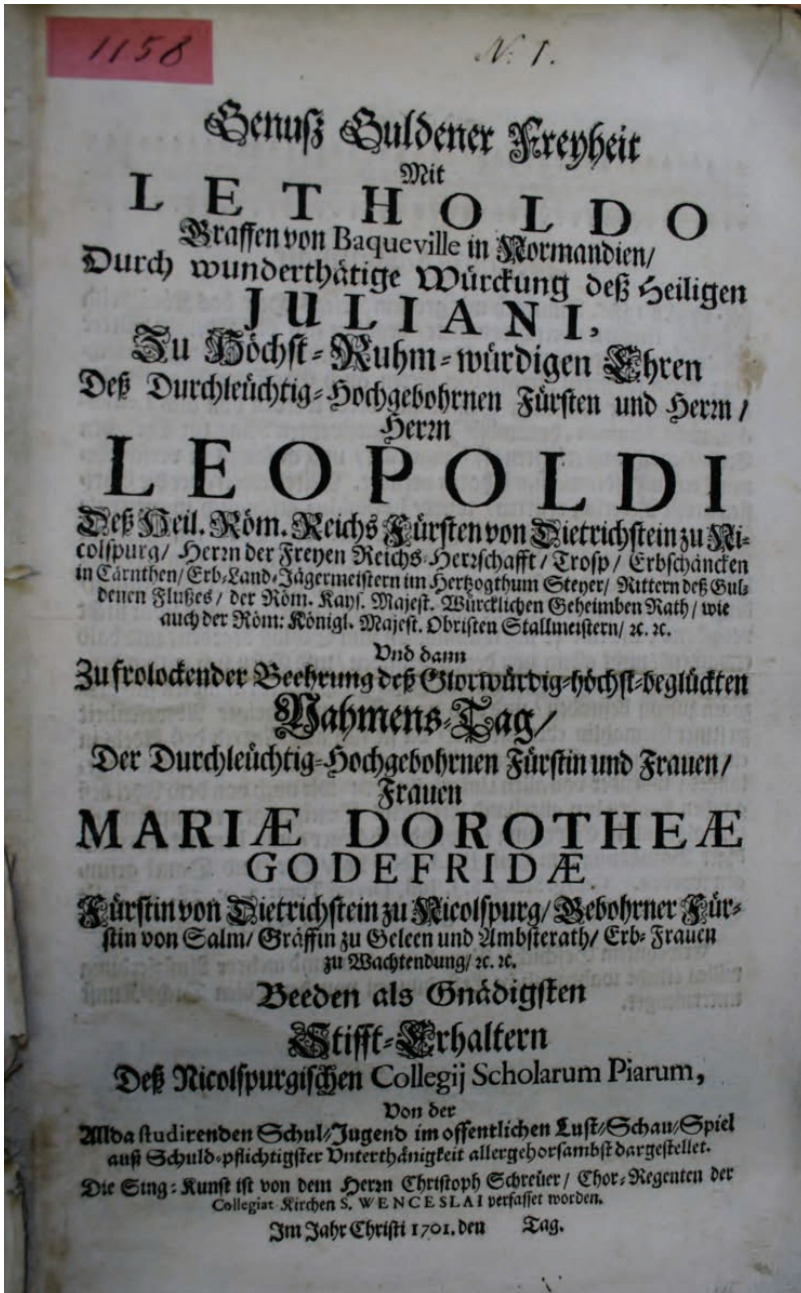 1158
N. 1.
Genuß Guldener Freyheit
Mit
LETHOLDO
Graffen von Baqueville in Normandien/
Durch wunderthätige Würckung deß Heiligen
JULIANI,
Zu Höchst-Ruhm-würdigen Ehren
Deß Durchleüchtig-Hochgebohrnen Fürsten und Herrn/
Herrn
LEOPOLDI
Deß Heil. Röm. Reichs Fürsten von Dietrichstein zu Ni-
colspurg/ Herrn der Freyen Reichs Herrschafft/ Trosp/ Erbschäncken
in Cärnthen/ Erb-Land-Jägermeistern im Hertzogthum Steyer/ Rittern deß Gul-
denen Flußes/ der Röm. Kays. Majest. Würcklichen Geheimben Rath/ wie
auch der Röm: Königl. Majest. Obristen Stallmeistern/ ꝛc. ꝛc.
Und dann
Zu frolockender Beehrung deß Glorwürdig-höchst-beglückten
Nahmens-Tag/
Der Durchleüchtig-Hochgebohrnen Fürstin und Frauen/
Frauen
MARIÆ DOROTHEÆ
GODEFRIDÆ
Fürstin von Dietrichstein zu Nicolspurg/ Gebohrner Für-
stin von Salm/ Gräffin zu Geleen und Ambsterath/ Erb-Frauen
zu Wachtendung/ ꝛc. ꝛc.
Beeden als Gnädigsten
Stifft-Erhaltern
Deß Nicolspurgischen Collegij Scholarum Piarum,
Von der
Allda studirenden Schul-Jugend im offentlichen Lust-Schau-Spiel
auß Schuld-pflichtigster Unterthänigkeit allergehorsambst dargestellet.
Die Sing-Kunst ist von dem Herrn Christoph Schreüer/ Chor-Regenten der
Collegiat Kirchen S. WENCESLAI verfasset worden.
Im Jahr Christi 1701. den Tag.